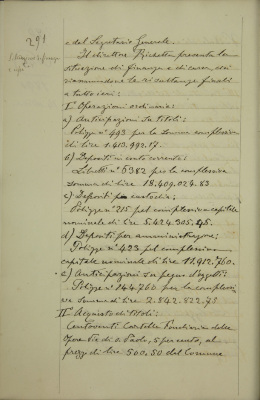 291
e dal Segretario Generale.
Il direttore presenta la
situazione di finanza e di cassa, coi
riassumendone le risultanze finali
a tutto ieri:
I° Operazioni ordinarie:
a) Anticipazioni su titoli:
Polizze n° 493 per la somma complessiva
di lire 1.413.992.17.
b) Depositi in conto corrente:
Libretti n° 5382 per la complessiva
somma di lire 18.409.024.83
c) Depositi per custodia:
Polizze n° 215 pel complessivo capitale
nominale di lire 5.424.305.45.
d) Depositi per amministrazione:
Polizze n° 423 pel complessivo
capitale nominale di lire 11.912.760.
e) Anticipazioni su pegno d'oggetti:
Polizze n° 144.760 per la complessi
va somma di lire 2.842.822.75
II° Acquisto di titoli:
Centoventi Cartelle Fondiarie delle
Opere Pie di S. Paolo, 5 per cento, al
prezzo di lire 500.50 del Comune